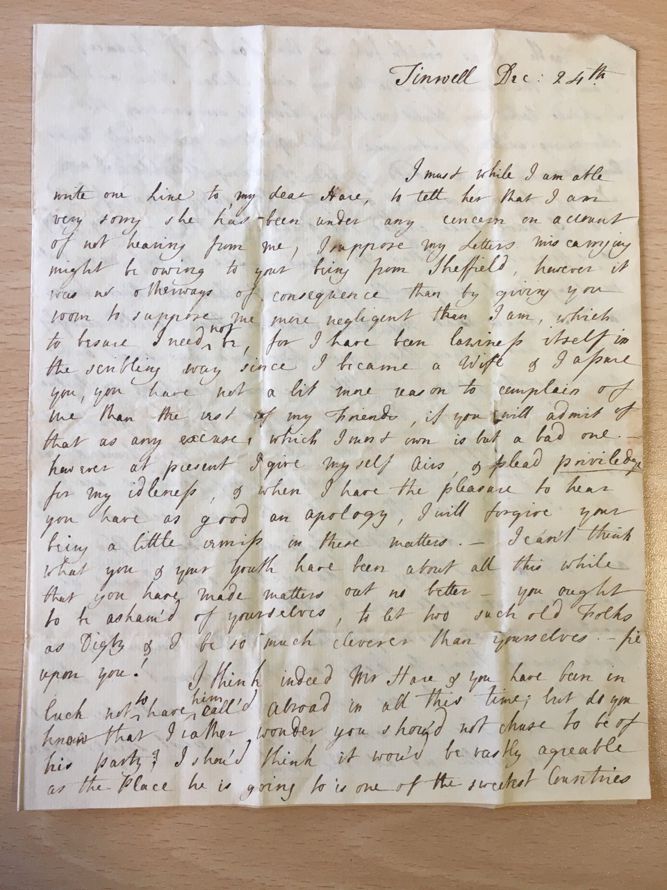 Tinwell Dec: 24th
I must while I am able
write one Line to my dear Hare, to tell her that I am
very sorry she has been under any concern on account
of not hearing from me, I suppose my Letters miscarrying
might be owing to your being from Sheffield, however it
was no otherways of consequence than by giving you
room to suppose me more negligent than I am, which
to besure I need not be, for I have been laziness itself in
the scribling way since I became a Wife & I assure
you, you have not a bit more reason to complain of
me than the rest of my Friends, if you will admit of
that as any excuse, which I must own is but a bad one. —
however at present I give myself Airs, & plead priviledge
for my idleness, & when I have the pleasure to hear
you have as good an apology, I will forgive your
being a little remiss in these matters. — I can't think
what you & your Youth have been about all this while
that you have made matters out no better — you ought
to be asham'd of yourselves, to let two such old Folks
as Digby & I be so much cleverer than yourselves — fie
upon you! I think indeed Mr Hare & you have been in
luck not to have him call'd abroad in all this time; but do you
know that I rather wonder you shou'd not chuse to be of
his party? I shou'd think it wou'd be vastly agreable
as the Place he is going to is one of the sweetest Countries